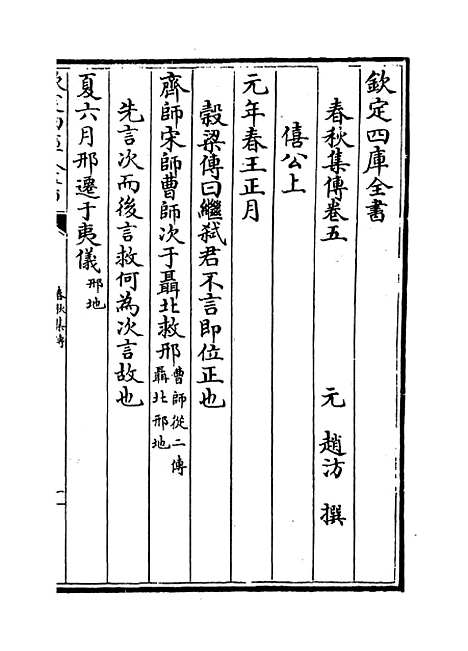 欽定四庫全書
春秋集傳卷五
元 趙汸 撰
僖公上
元年春王正月
穀梁傳曰繼弑君不言即位正也
齊師宋師曹師次于聶北救邢曹師從二傳聶北邢地
先言次而後言救何為次言故也
夏六月邢遷于夷儀邢地
春秋集傳
一